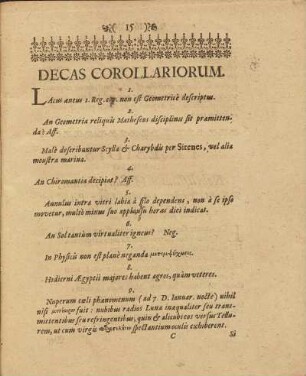 15
DECAS COROLLARIORUM.
1.
LAcus æneus 1. Reg. non est Geometricè descriptus.
2.
An Geometria reliquis Matheseos disciplinis sit præmitten-
da? Aff.
3.
Malè describuntur Scylla & Charybdis per Sirenes, vel alia
monstra marina.
4.
An Chiromantia decipiat? Aff.
5.
Annulus intra vitri labia à filo dependens, non à se ipso
movetur, multò minus suo appulsu horas diei indicat.
6.
An Sol tantùm virtualiter igneus? Neg.
7.
In Physicis non est planè neganda
8.
Hodierni Ægyptii majores habent agros, quàm veteres.
9.
Nuperum cœli phænomenon (ad 7. D. Januar. nocte) nihil
nisi fuit: nubibus radios Lunæ inæqualiter seu trans-
mittentibus seu refringentibus, quin & alicubi eos versus Terra-
rem, ut cum virgis spectantium oculis exhiberent.
C